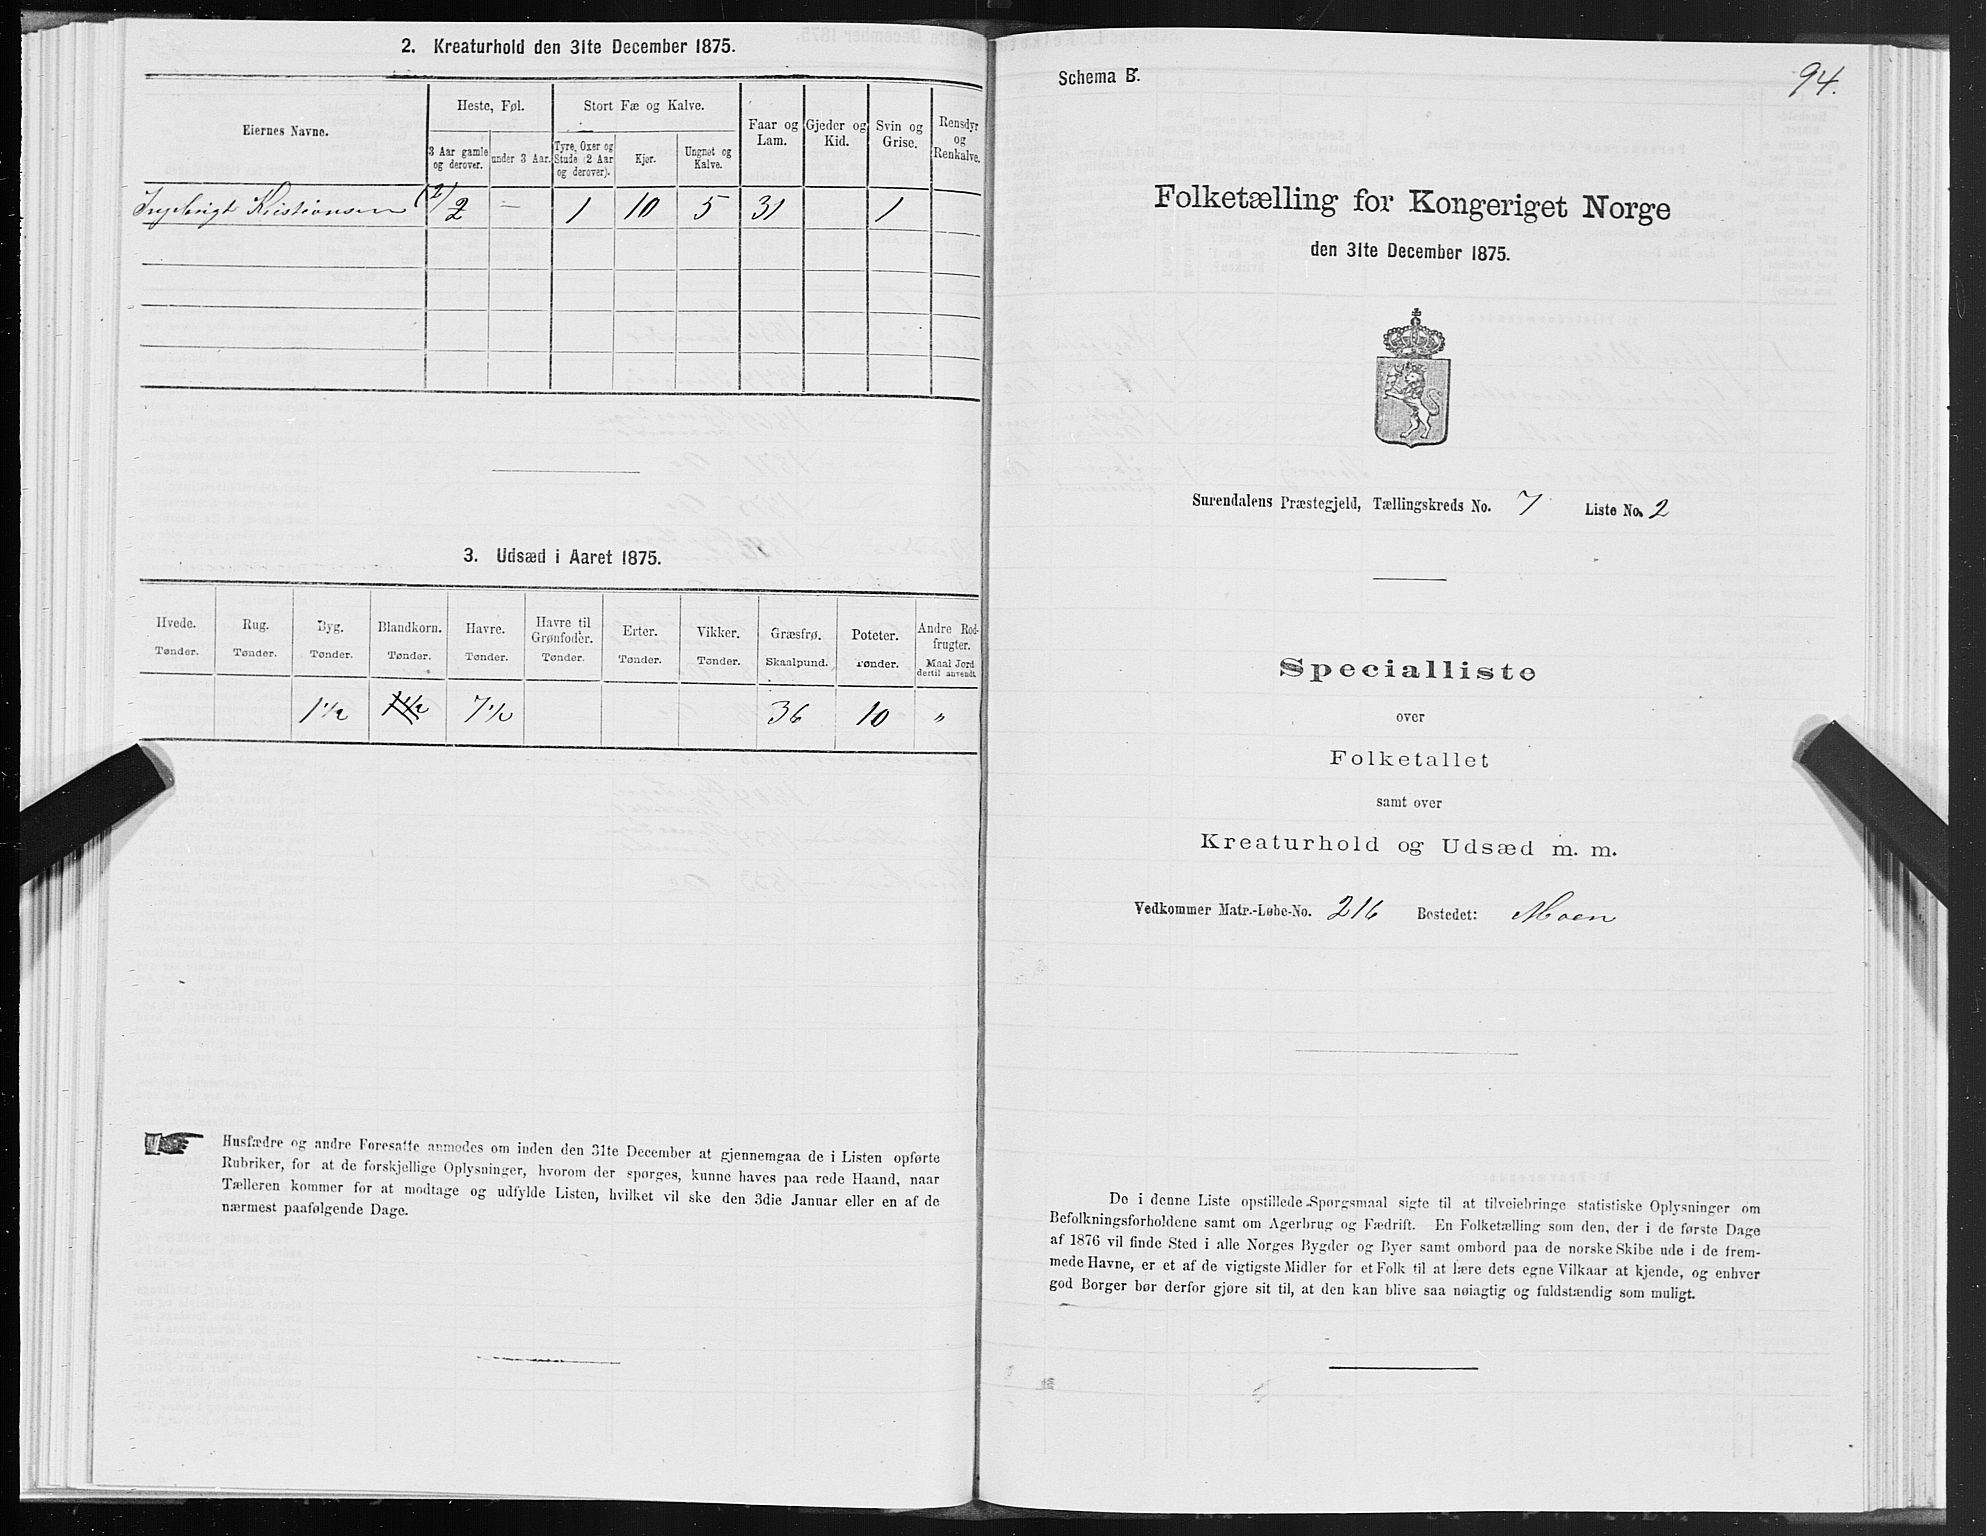 2. Kreaturhold den 31te December 1875.
Eiernes Navne.
Heste, Føl.
Stort Fæ og Kalve.
Faar og Lam.
Gjeder og Kid.
Svin og Grise.
Rensdyr og Renkalve.
3 Aar gamle og derover.
under 3 Aar.
Tyre, Oxer og Stude (2 Aar og derover).
Kjør.
Ungnøt og Kalve.
Ingebrigt Kristiansen (2/ 2 — 1 10 5 31 1
3. Udsæd i Aaret 1875.
Hvede. Rug. Byg. Blandkorn. Havre. Havre til Grønfoder. Erter. Vikker. Græsfrø. Poteter. Andre Rodfrugter.
Tønder. Tønder. Tønder. Tønder. Tønder. Tønder. Tønder. Tønder. Skaalpund. Tønder. Maal Jord dertil anvendt.
1 1/2 1 1/2 7 1/2 36 10 "
Husfædre og andre Foresatte anmodes om inden den 31te December at gjennemgaa de i Listen opførte
Rubriker, for at de forskjellige Oplysninger, hvorom der spørges, kunne haves paa rede Haand, naar
Tælleren kommer for at modtage og udfylde Listen, hvilket vil ske den 3die Januar eller en af de
nærmest paafølgende Dage.
Schema B.
94.
Folketælling for Kongeriget Norge
den 31te December 1875.
Surendalens Præstegjeld, Tællingskreds No. 7 Liste No. 2
Specialliste
over
Folketallet
samt over
Kreaturhold og Udsæd m. m.
Vedkommer Matr.-Løbe-No. 216 Bostedet: Moen
De i denne Liste opstillede Spørgsmaal sigte til at tilveiebringe statistiske Oplysninger om
Befolkningsforholdene samt om Agerbrug og Fædrift. En Folketælling som den, der i de første Dage
af 1876 vil finde Sted i alle Norges Bygder og Byer samt ombord paa de norske Skibe ude i de frem-
mede Havne, er et af de vigtigste Midler for et Folk til at lære dets egne Vilkaar at kjende, og enhver
god Borger bør derfor gjøre sit til, at den kan blive saa nøiagtig og fuldstændig som muligt.